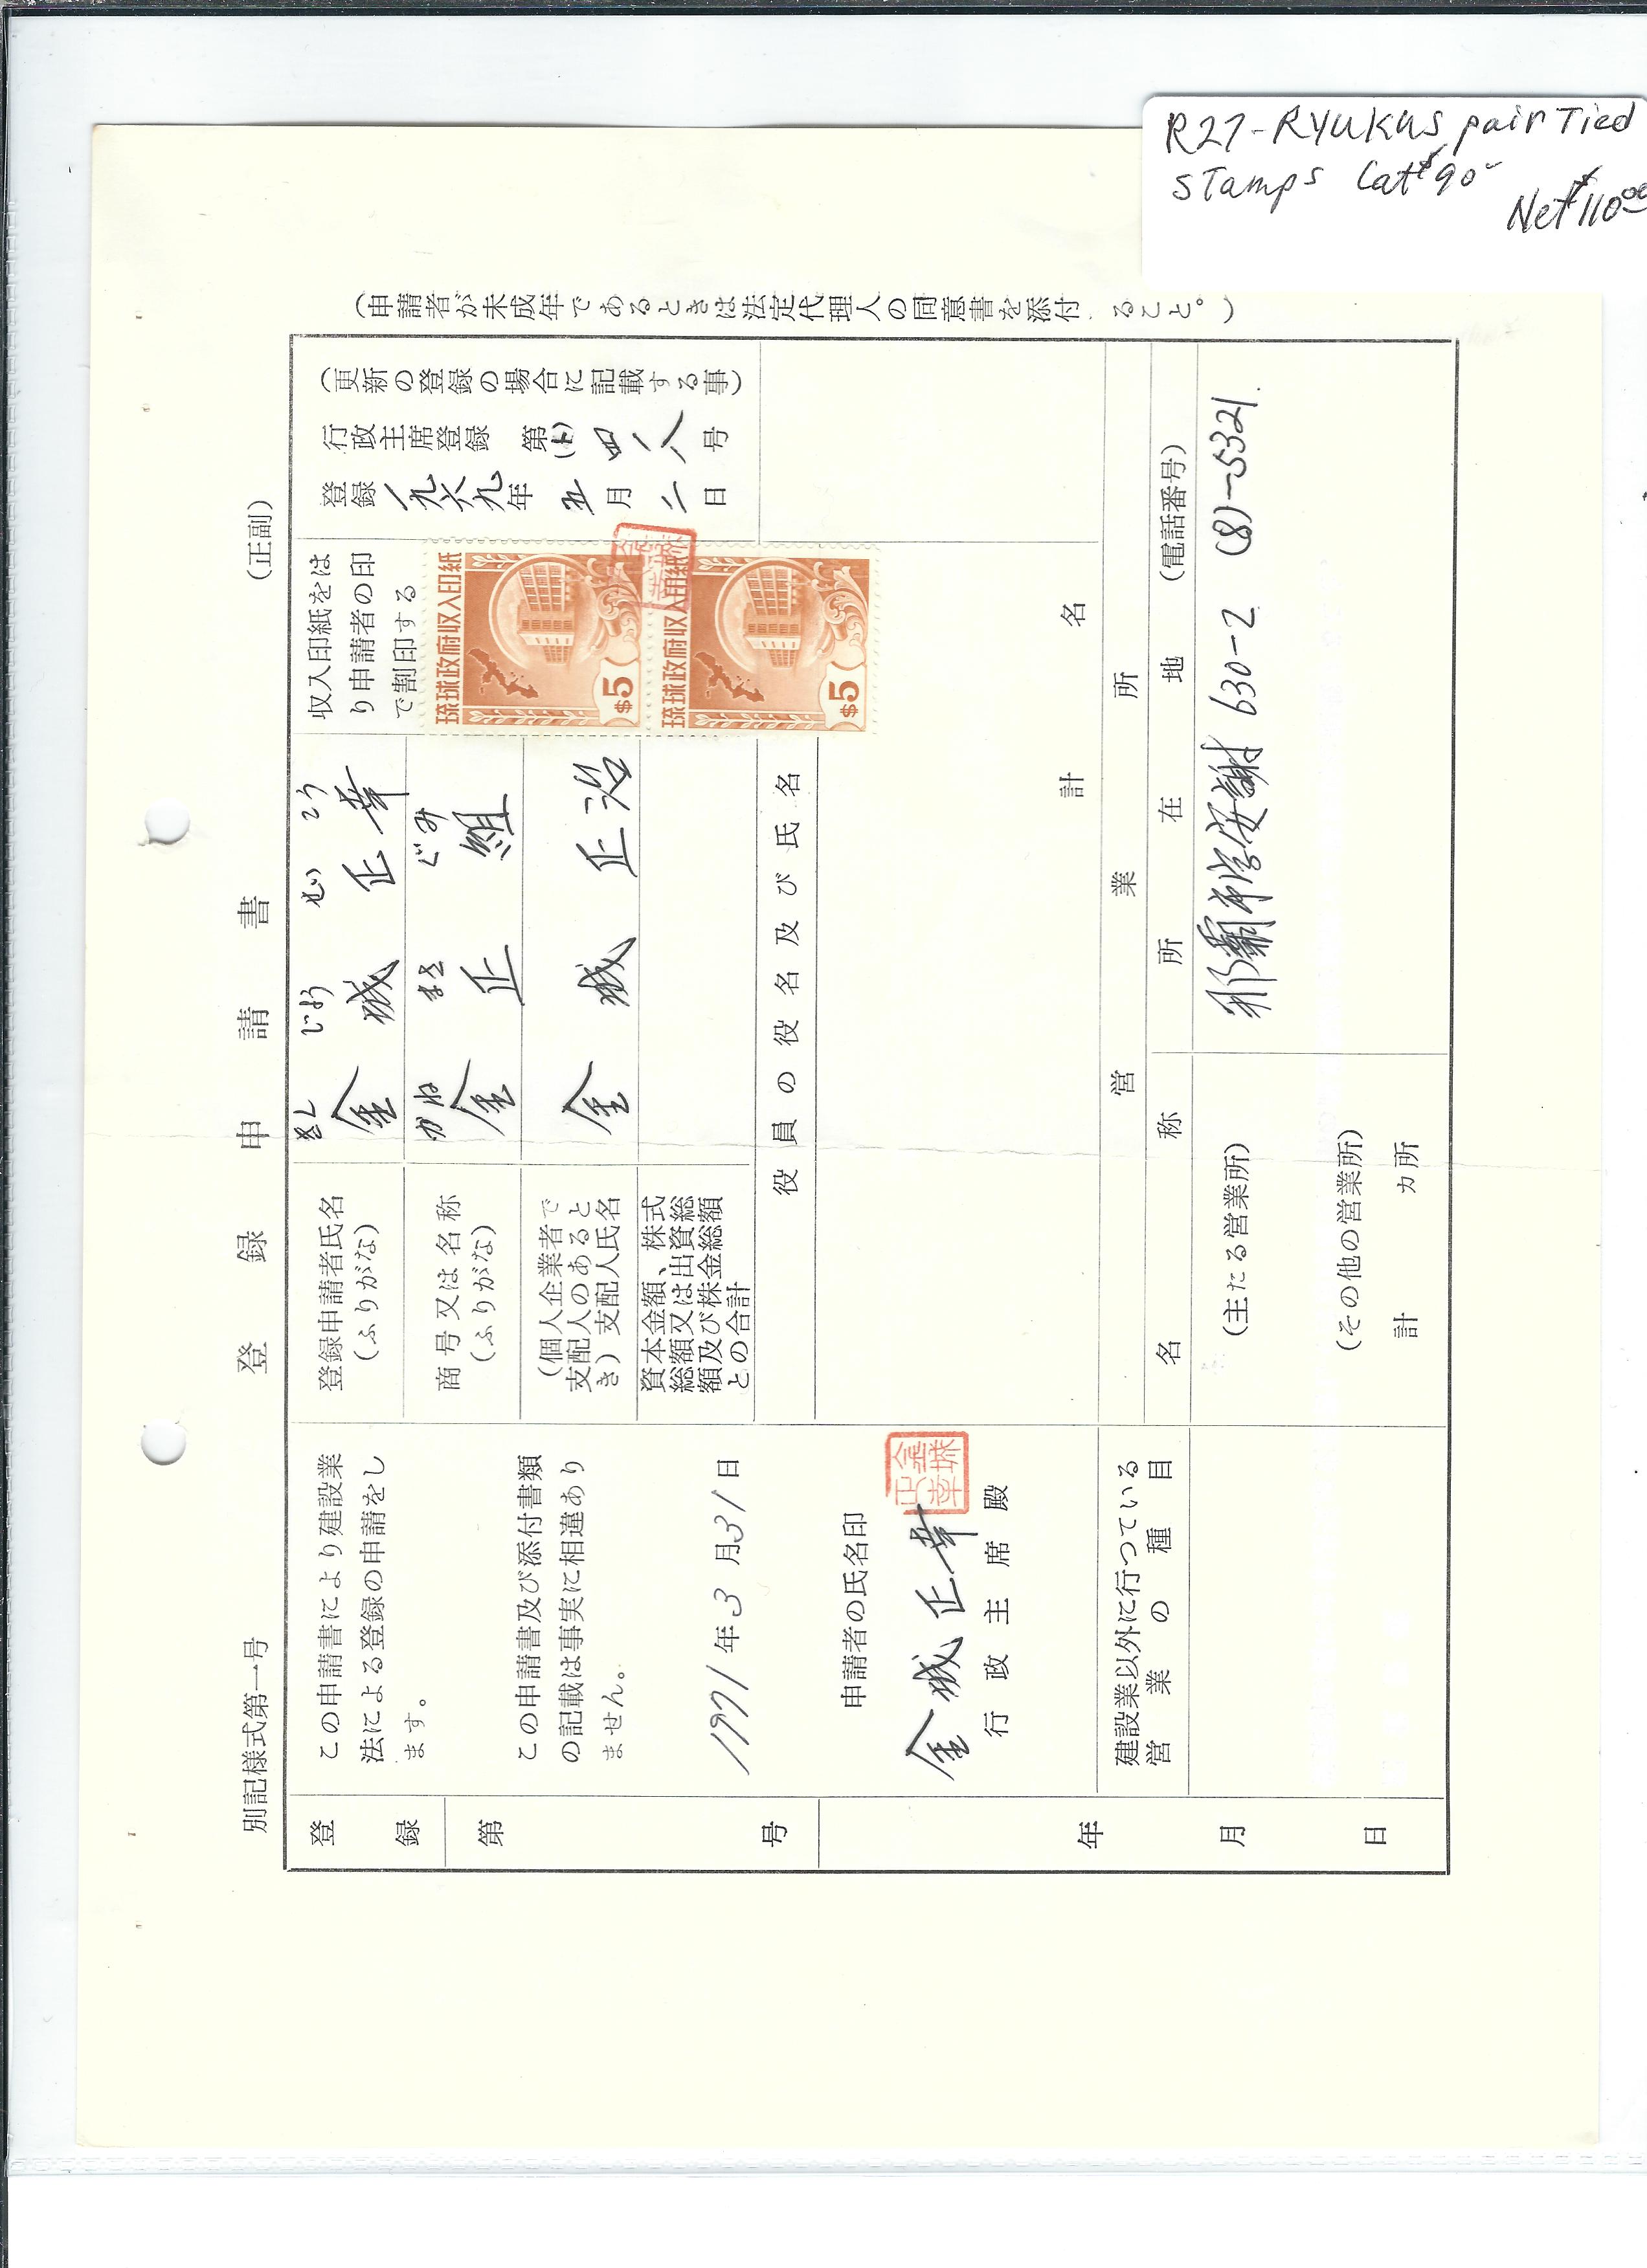 R27-RYUKUS pair Tied
STamps Cat $90-
Net $110.00
別記様式第一号
(正副)
登録申請書
登録
第
号
年
月
日
この申請書により建設業
法による登録の申請をし
ます。
この申請書及び添付書類
の記載は事実に相違あり
ません。
1971年3月31日
申請者の氏名印
金城正幸
金城正幸
行政主席殿
建設業以外に行つている
営業の種目
登録申請者氏名
(ふりがな)
きんじょうせいこう
金城正幸
商号又は名称
(ふりがな)
かねまさぐみ
金正組
(個人企業者で
支配人のあると
き)支配人氏名
金城正治
資本金額、株式
総額又は出資総
額及び株金総額
との合計
収入印紙をは
り申請者の印
で割印する
琉球政府収入印紙
$5
琉球政府収入印紙
$5
(更新の登録の場合に記載する事)
行政主席登録 第(と)四一八号
登録一九六九年五月二日
役員の役名及び氏名
計 名
営業所
名称
所在地 (電話番号)
(主たる営業所)
那覇市字安謝630-2 (8)-5321.
(その他の営業所)
計 カ所
(申請者が未成年であるときは法定代理人の同意書を添付 ること。)